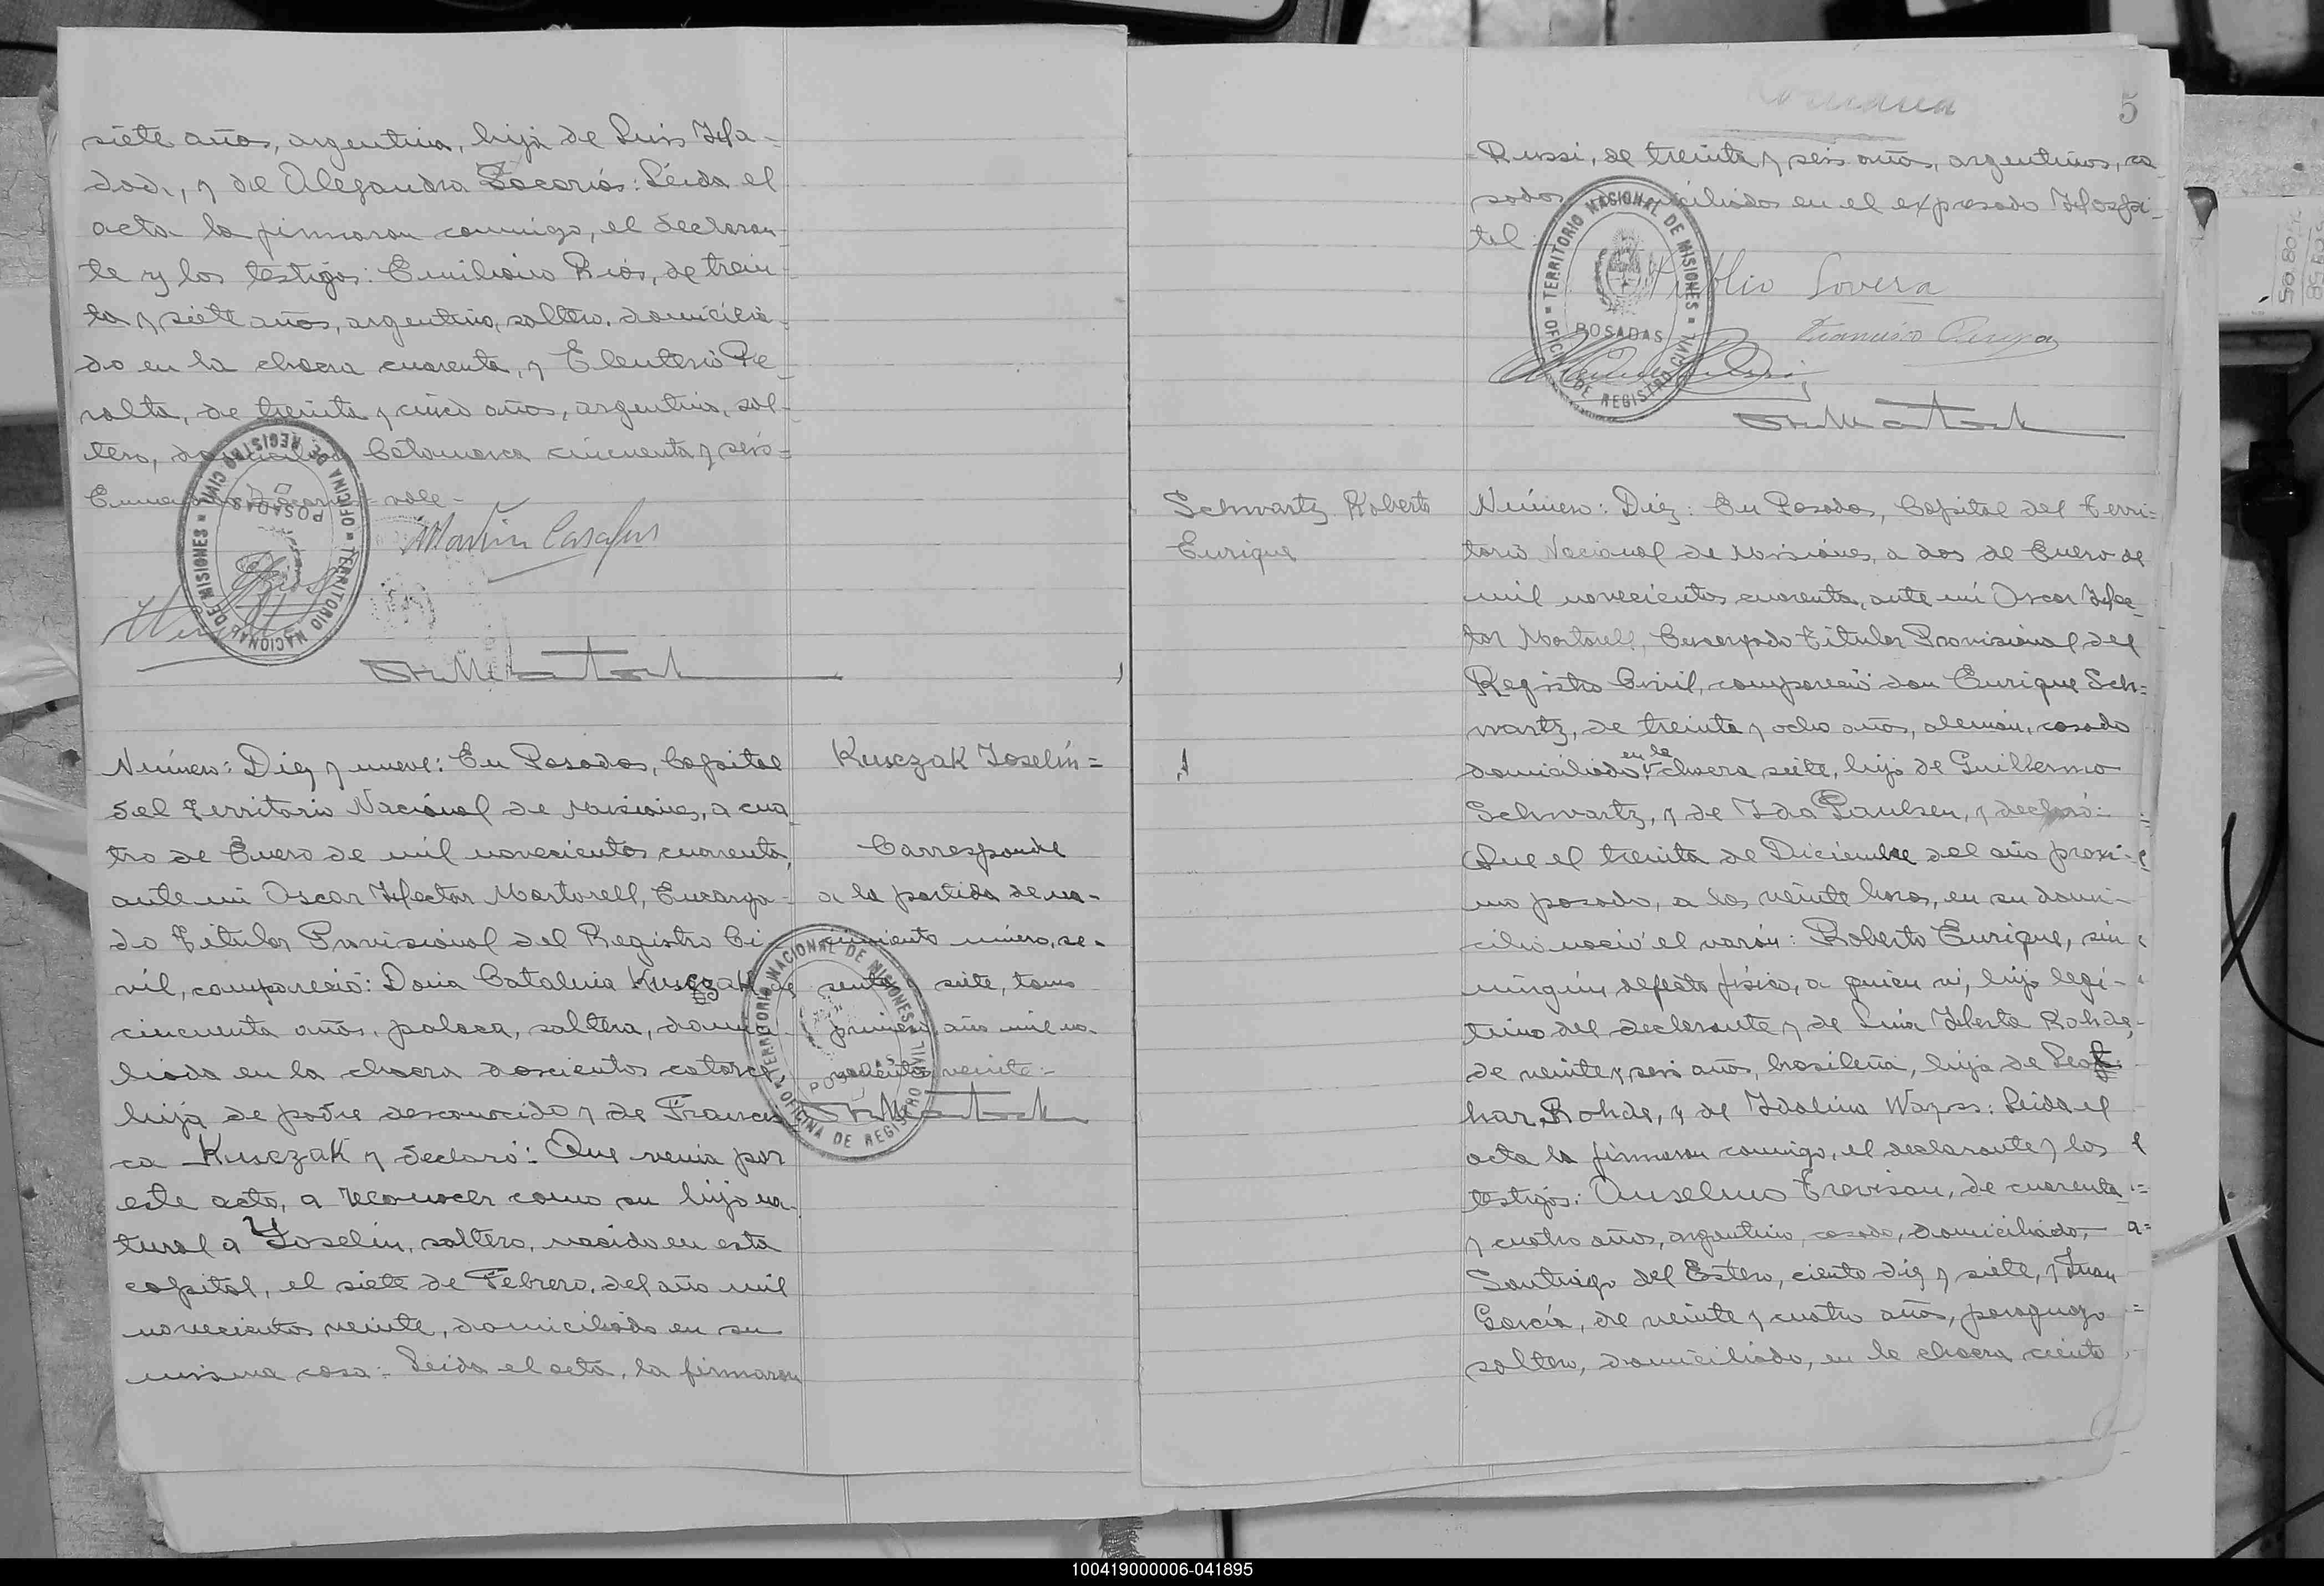 siete años, argentina, hija de Luis Ha-
dad, y de Alegandra Zacarías: Leida el
acta la firmaron conmigo, el declaran-
te y los testigos: Emiliano Rios, de trein-
ta y siete años, argentino, soltero, domicilia-
do en la chacra cuarenta, y Eleuterio Pe-
ralta, de treinta y cinco años, argentino, sol-
tero, domiciliado Catamarca cincuenta y seis=
Zacarías = vale -
OFICINA DE REGISTRO CIVIL
TERRITORIO NACIONAL DE MISIONES
POSADAS
Martin Casafus
Número: Diez y nueve: En Posadas, Capital
del Territorio Nacional de Misiones, a cua-
tro de Enero de mil novecientos cuarenta,
ante mi Oscar Hector Martorell, Encarga-
do Titular Provisional del Registro Ci-
vil, compareció: Doña Catalina Kusczak de
cincuenta años, polaca, soltera, domici-
liada en la chacra doscientos catorce
hija de padre desconocido y de Francis
ca Kusczak y declaró: Que venia por
este acto, a reconocer como su hijo na-
tural a Yoselín, soltero, nacido en esta
capital, el siete de Febrero, del año mil
novecientos veinte, domiciliado en su
misma casa: Leida el acta, la firmaron
Kusczak Joselín=
Corresponde
a la partida de na-
cimiento número, se-
senta y siete, tomo
primero año mil no-
vecientos veinte:-
TERRITORIO NACIONAL DE MISIONES
POSADAS
OFICINA DE REGISTRO CIVIL
5
Russi, de treinta y seis años, argentinos, ca-
sados domiciliados en el expresado Hospi-
tal
TERRITORIO NACIONAL DE MISIONES
POSADAS
OFICINA DE REGISTRO CIVIL
Publio Lovera
Schwartz Roberto
Enrique
Número: Diez: En Posadas, Capital del Terri-
torio Nacional de Misiones, a dos de Enero de
mil novecientos cuarenta, ante mí Oscar Hec-
tor Martorell, Encargado Titular Provisional del
Registro Civil, compareció don Enrique Sch-
wartz, de treinta y ocho años, alemán, casado
domiciliado en la chacra siete, hijo de Guillermo
Schwartz, y de Ida Paulsen, y declaró:
Que el treinta de Diciembre del año proxi-
mo pasado, a las veinte horas, en su domi-
cilio nació el varón: Roberto Enrique, sin
ningún defecto físico, a quien vi, hijo legi-
timo del declarante y de Herta Rohde,
de veinte y seis años, brasileña, hija de
har Rohde, y de Idalina Wayss: Leida el
acta la firmaron conmigo, el declarante y los
testigos: Anselmo Trevisan, de cuarenta
y cuatro años, argentino, casado, domiciliado,
Santiago del Estero, ciento diez y siete, y Juan
García, de veinte y cuatro años, paraguayo
soltero, domiciliado, en la chacra ciento
100419000006-041895